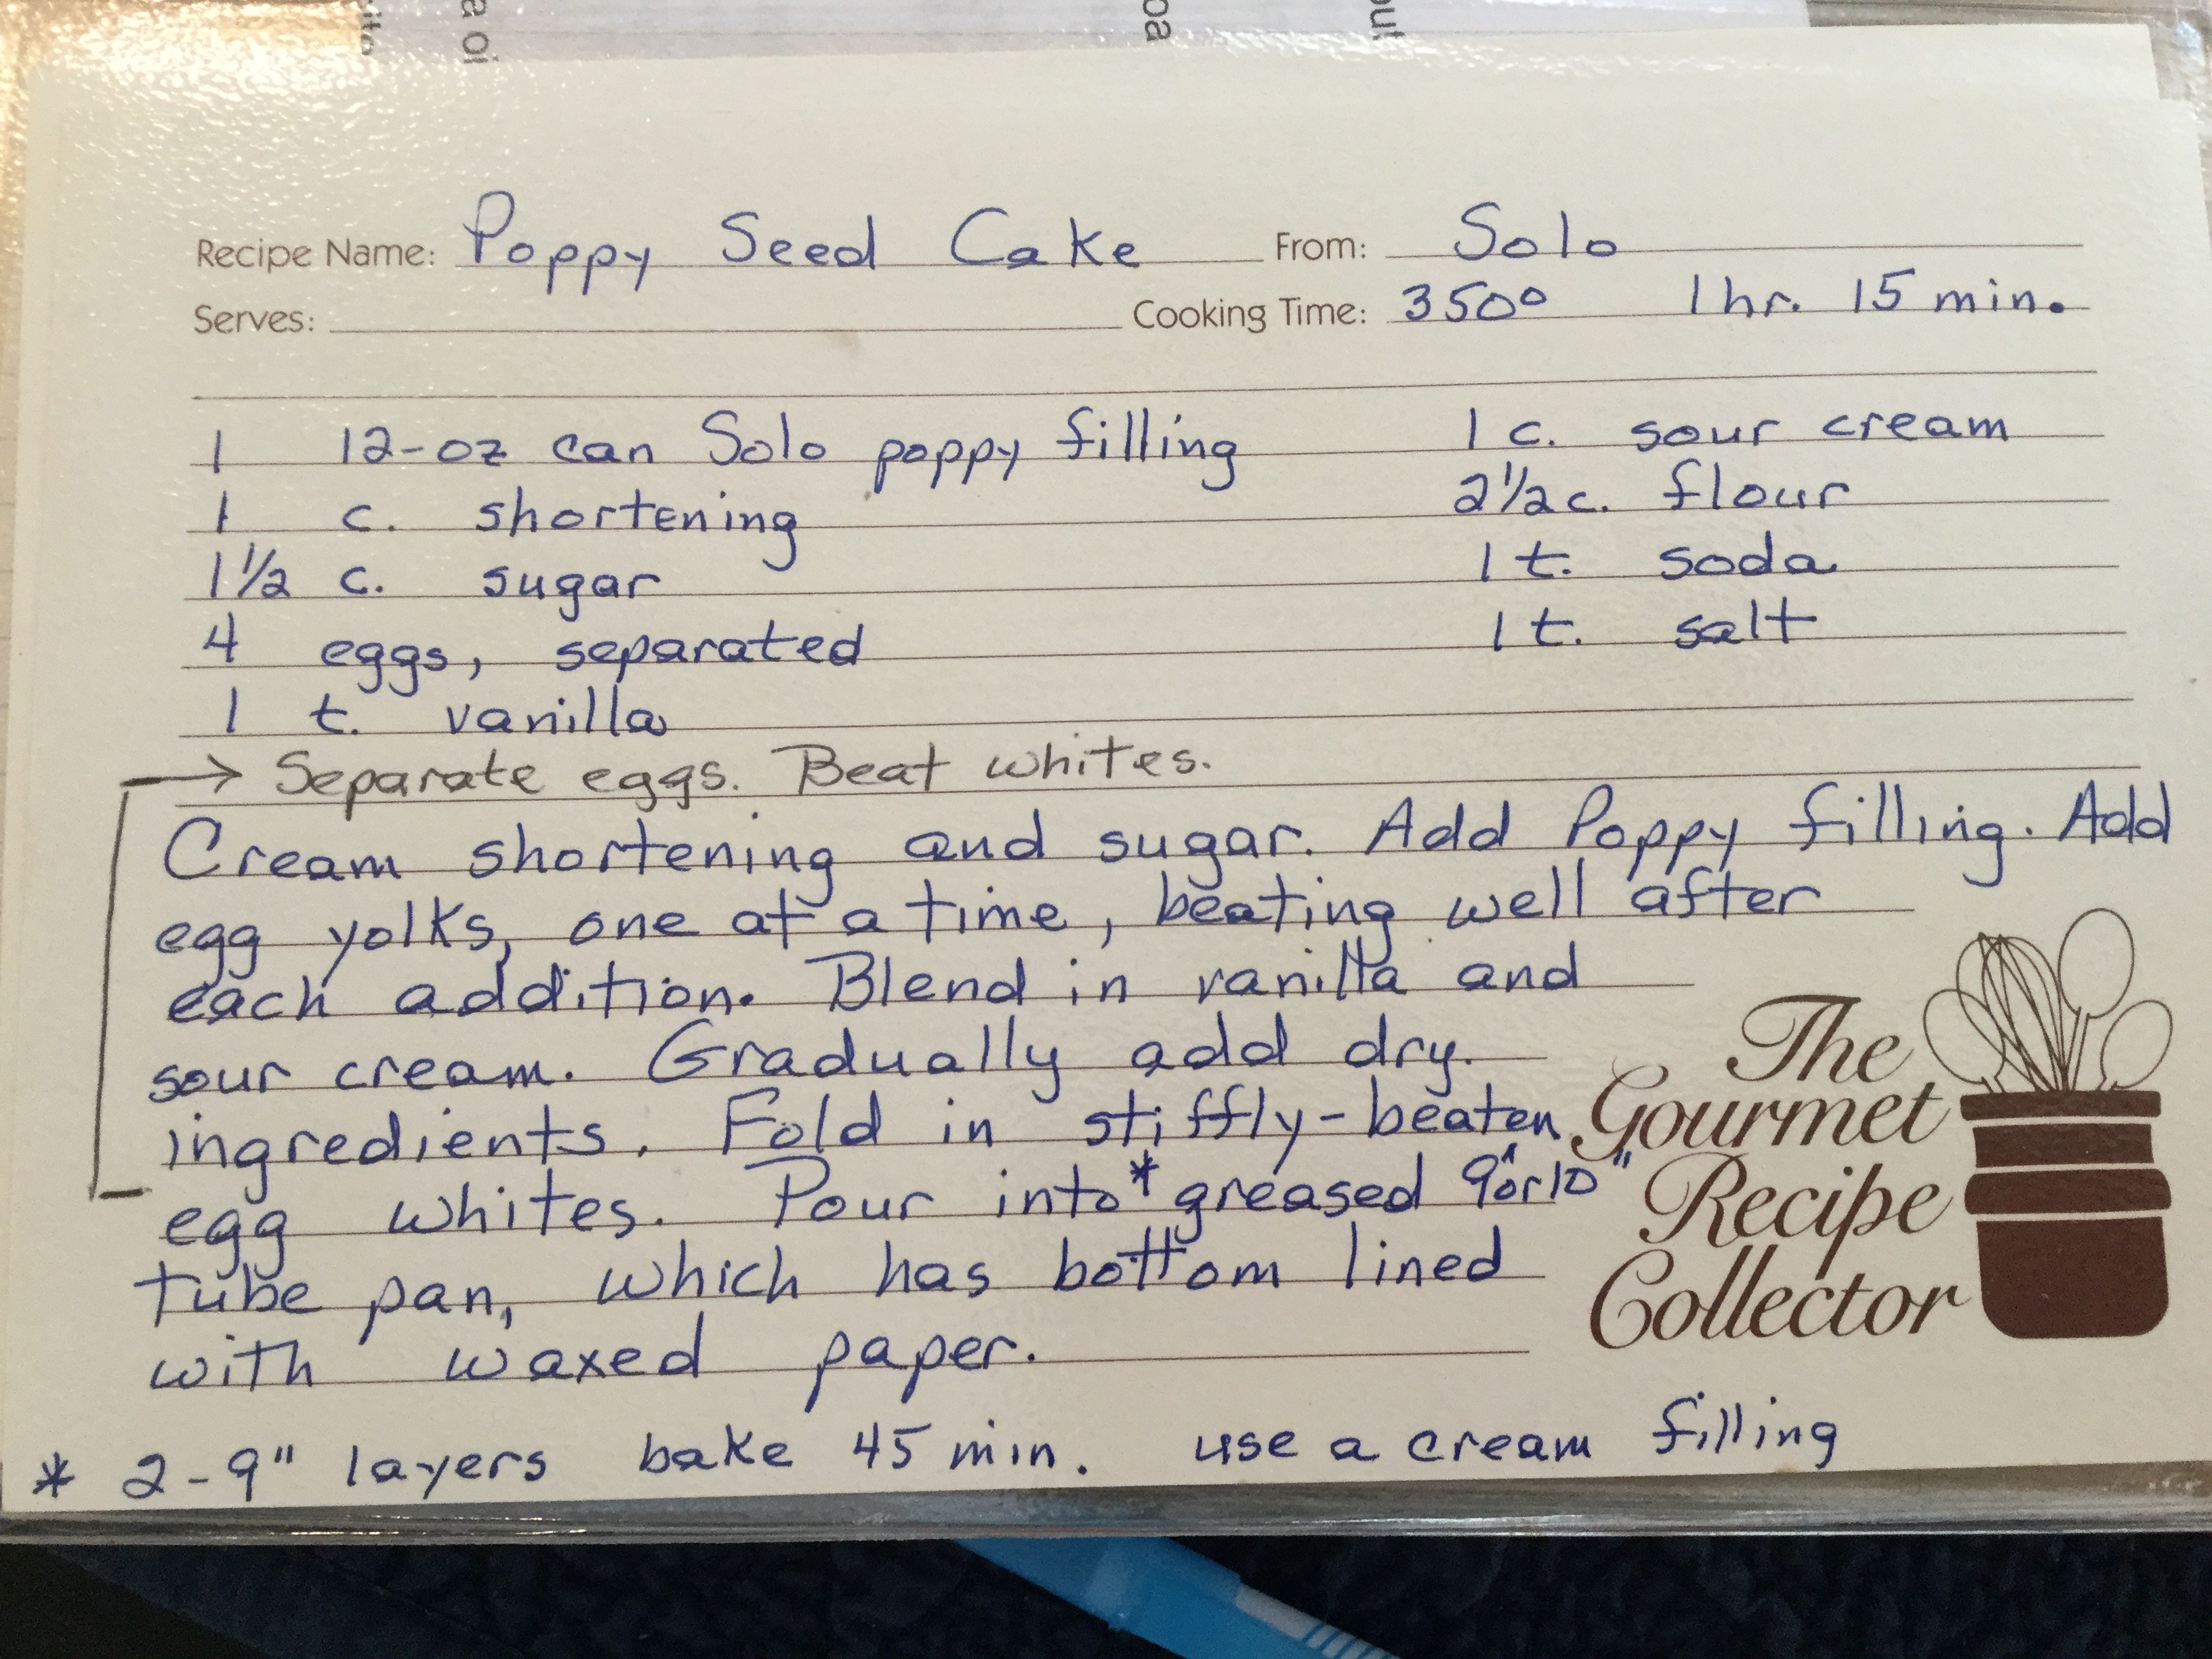 a oi
oa
out
Recipe Name: Poppy Seed Cake From: Solo
Serves: Cooking Time: 350° 1 hr. 15 min.
1 12-oz can Solo poppy filling
1 c. shortening
1 1/2 c. sugar
4 eggs, separated
1 t. vanilla
1 c. sour cream
2 1/2 c. flour
1 t. soda
1 t. salt
→ Separate eggs. Beat whites.
Cream shortening and sugar. Add Poppy filling. Add
egg yolks, one at a time, beating well after
each addition. Blend in vanilla and
sour cream. Gradually add dry.
ingredients. Fold in stiffly-beaten
egg whites. Pour into * greased 9" or 10"
tube pan, which has bottom lined
with waxed paper.
* 2-9" layers bake 45 min. use a cream filling
The
Gourmet
Recipe
Collector